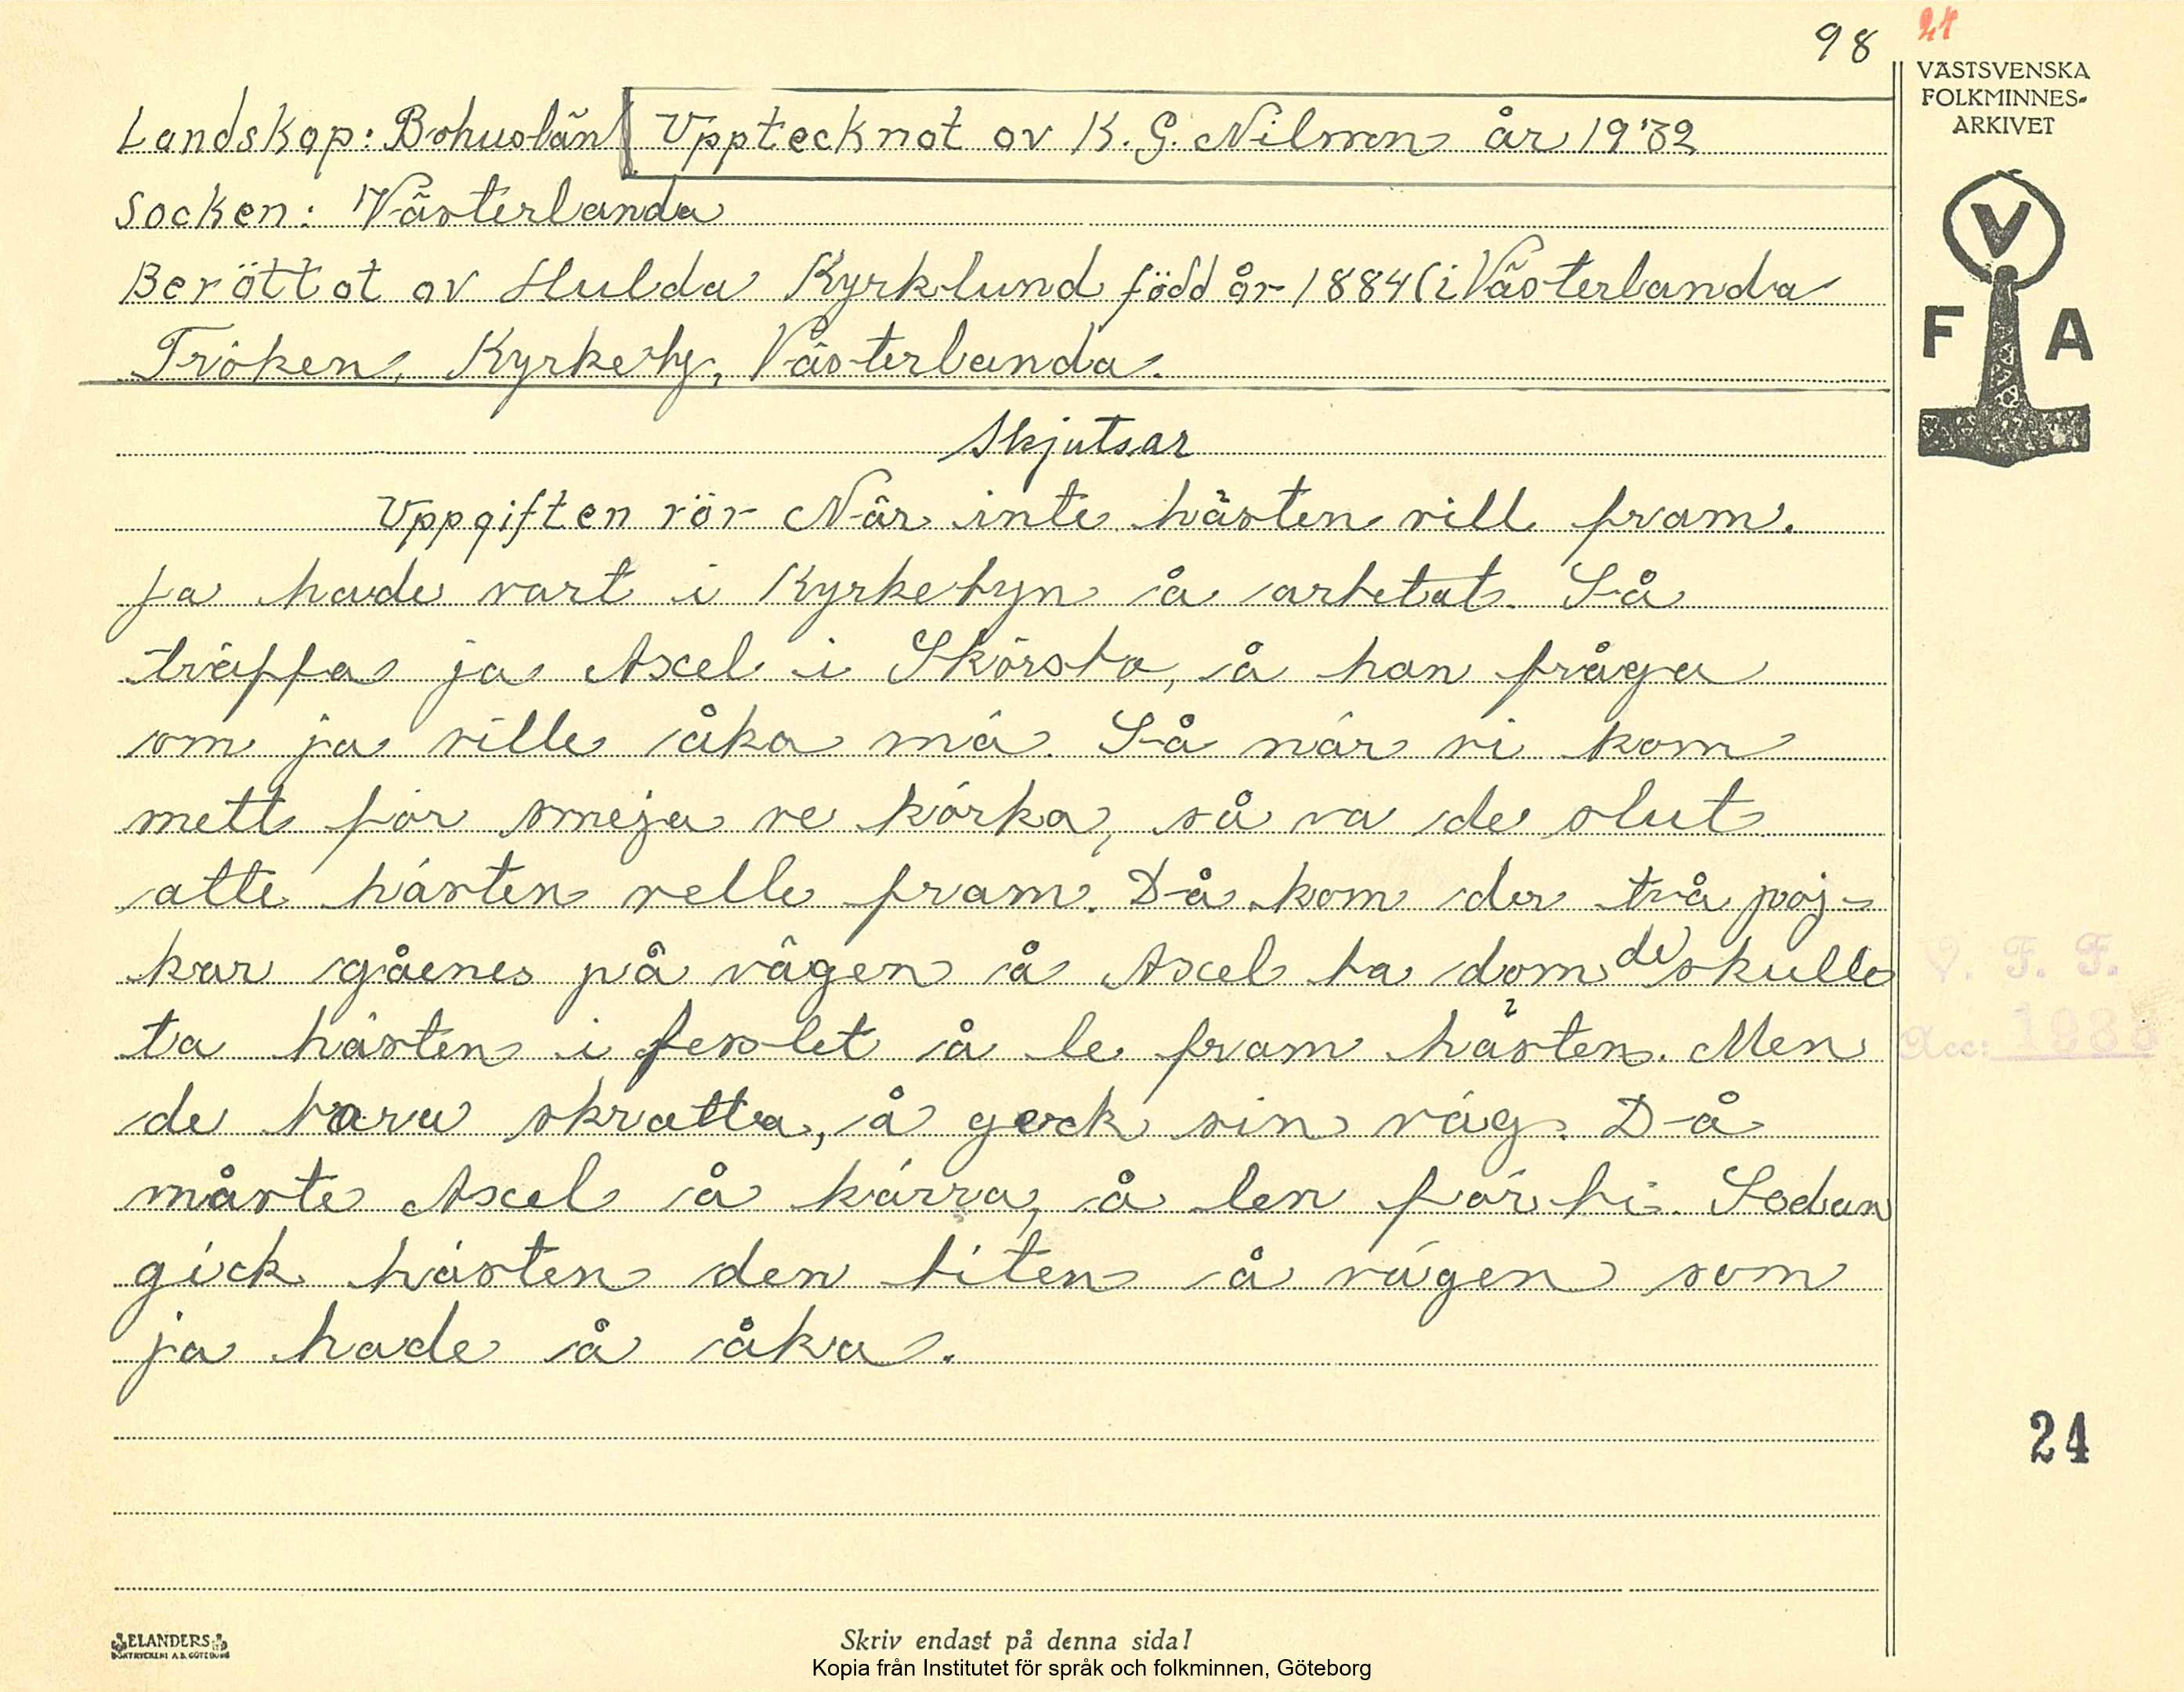 98 24
VÄSTSVENSKA
FOLKMINNES-
ARKIVET
V
F A
Landskap: Bohuslän Upptecknat av K. G. Nilsson år 1932
Socken: Västerlanda
Berättat av Hulda Kyrklund född år 1884 i Västerlanda
Fröken, Kyrkeby, Västerlanda.
Skjutsar
Uppgiften rör När inte hästen vill fram.
Ja hade vart i Kyrkebyn å arbetat. Så
träffa ja Axel i Skörsbo, å han fråga
om ja ville åka mä. Så när vi kom
mett för smeja ve körka, så va de slut
atte hästen velle fram. Då kom der två poj-
kar gåenes på vägen å Axel ba dom de skulle
ta hästen i besslet å le fram hästen. Men
de bara skratta, å geck sin väg. Då
måste Axel å kärra, å len förbi. Sedan
gick hästen den biten å vägen som
ja hade å åka.
V. F. F.
Acc: 1933
24
ELANDERS
BOKTRYCKERI A.B. GÖTEBORG
Skriv endast på denna sida!
Kopia från Institutet för språk och folkminnen, Göteborg